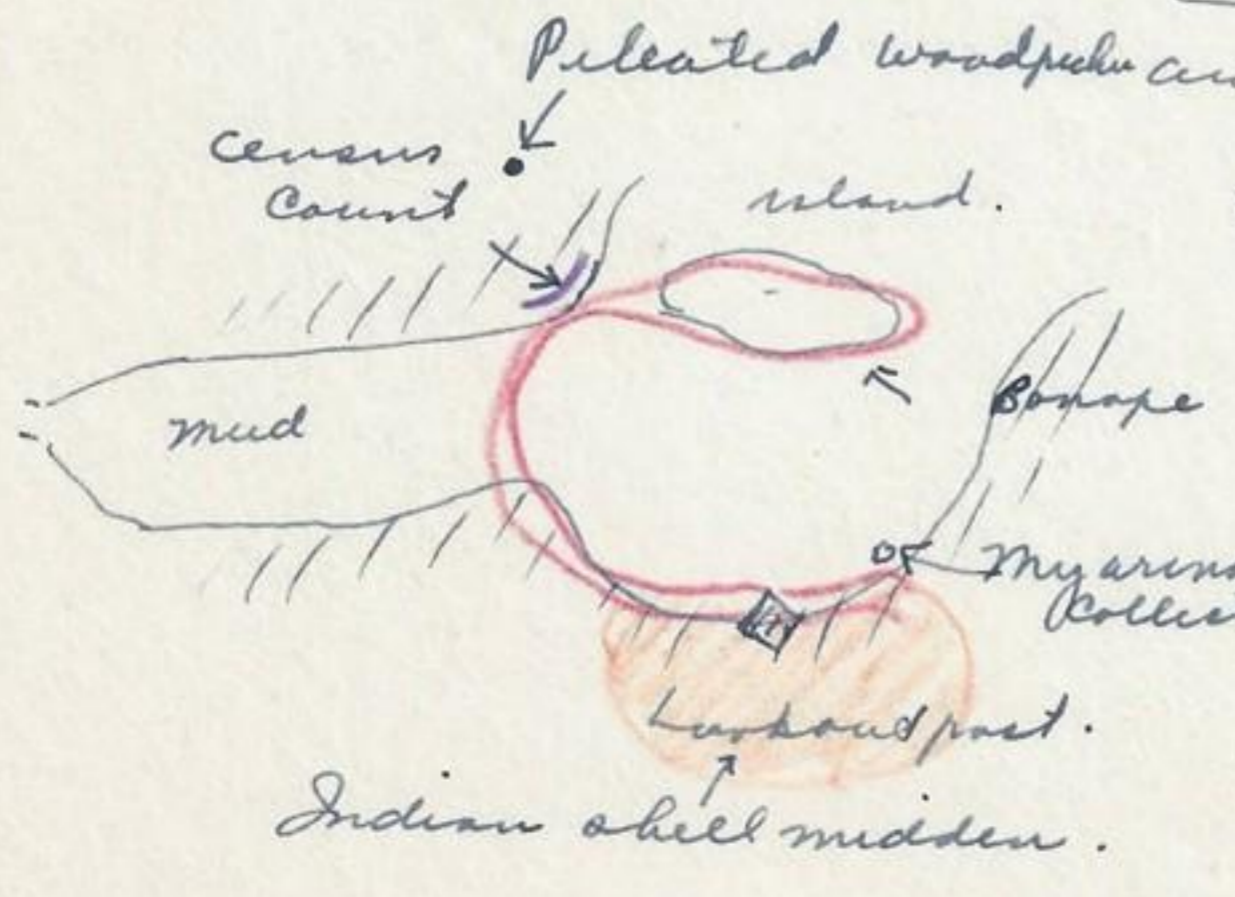 Pileated woodpecker
Census
Count
island.
mud
Mya arena
Collec
Lookout post.
Indian shell midden.